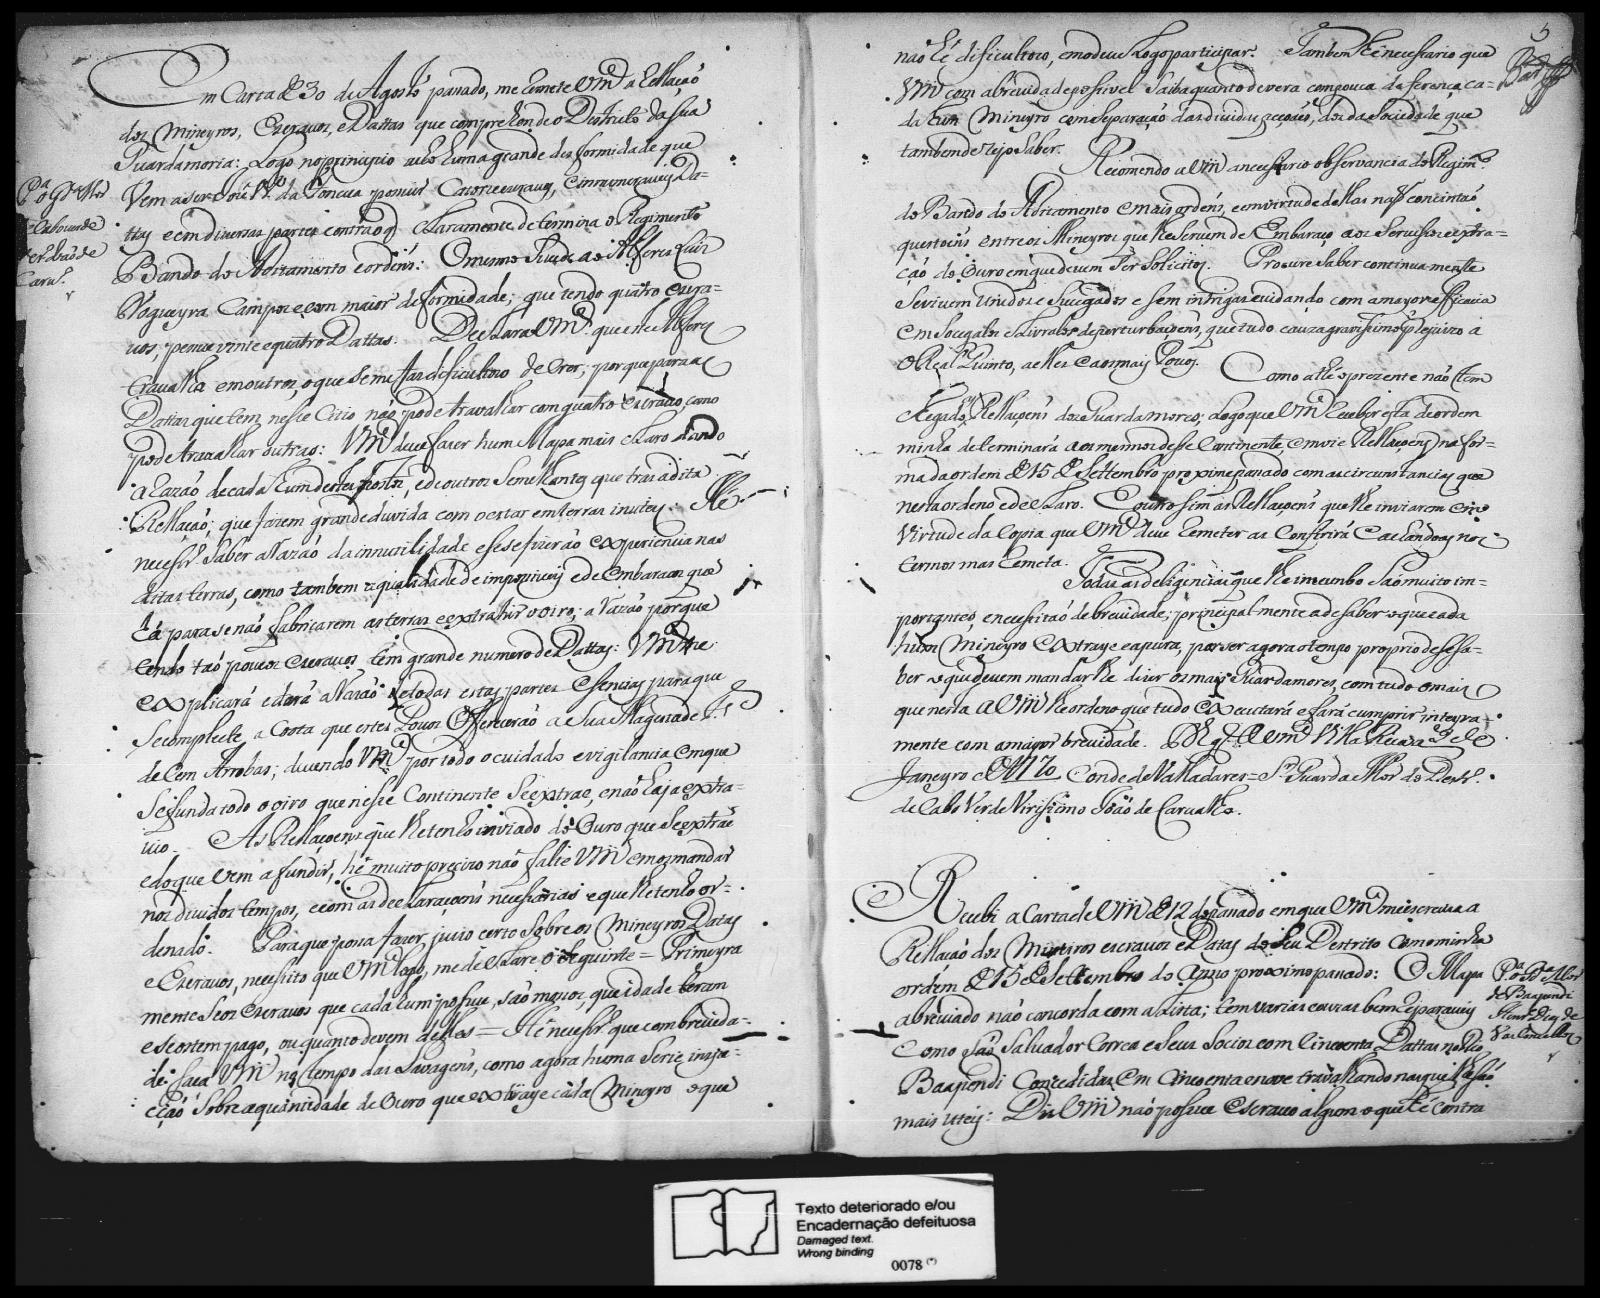 Em Carta de 30 de Agosto passado, me remete Vm.ce a Rellação
dos Mineyros, Escravos, e Dattas que comprehende o Districto da sua
Guardamoria: Logo no principio acho huma grande disformidade que
Vem a ser
P.a o G.da Mor
de Cabo verde
Verissimo João de
Carv.o
ttas e em diversas partes contra o q claramente determina o Regimento
Bando do Aditamento e ordens: O mesmo Sucede ao Alferes Luis
Nogueyra Campos e com maior disformidade; que tendo quatro escra-
vos, pessue vinte e quatro Dattas. Declara Vm.ce que este Alferes
travalha em outros, o que se me faz dificultozo de crer; porque para as
Dattas que tem nesse Citio não pode travalhar com quatro escravos, como
pode travalhar outras: Vm.ce deve fazer hum Mapa mais claro dando
a Razão de cada hum destes pontos, e de outros Semelhantes que tras a dita
Rellação; que fazem grande duvida com o estar em terras inuteis: He
necess.o Saber a Razão da innutilidade e se se fizerão experiencia nas
dittas terras, como tambem a qualidade de impossiveis e de embarassos que
há para se não fabricarem as terras e extrahir o oiro; a Razão porque
tendo tão poucos escravos, tem grande numero de Dattas: Vm.ce me
explicará e dará a Razão de todas estas partes essenciais para que
Se complecte a Cota que estes Povos offerecerão a Sua Magestade
de Cem Arrobas; devendo Vm.ce por todo o cuidado e vigilancia em que
Se funda todo o oiro que nesse Continente Se extrae, e não haja extra-
vio. As Rellaçoens que lhe tenho inviado do Ouro que Se extrae
e do que vem a fundir, hé muito precizo não falte Vm.ce em o mandar
nos devidos tempos, e com as declaraçoens necessarias e que lhe tenho or-
denado. Para que possa fazer juizo certo Sobre os Mineyros Datas
e Escravos, necessito que Vm.ce logo, me declare o Seguinte = Primeyra
mente Se os Escravos que cada hum possue, são mossos, que idade teram
e Se os tem pago, ou quanto devem delles = Hé necess.o que com brevida-
de faça Vm.ce no tempo das Lavagens, como agora huma Serie inspe-
cção Sobre a quantidade de Ouro que extraye cada Mineyro o que
5
não hé dificultozo, e mo deve Logo participar. Tambem hé necessario que
Vm.ce com a brevidade possivel Saiba quanto devera com pouca diferença ca-
da hum Mineyro com Separação das dividas
tambem dezejo Saber. Recomendo a Vm.ce a necessario observancia do Regim.to
do Bando do Aditamento e mais ordens, e em virtude dellas não consinta
questoens entre os Mineyros que lhe Servem de Embaraço aos Servissos e extra-
ção do Ouro em que devem Ser Solicitos. Procure Saber continuamente
Se vivem Unidos e Sucegados e sem intrigas cuidando com a mayor efficacia
em Socegalos e Livralos de perturbaçoens, que tudo cauza gravissimo prejuizo a
o Real Quinto, a elles e aos mais Povos. Como athé o prezente não tem
chegado Rellaçoens dos Guardamores; Logo que Vm.ce receber esta de ordem
minha determinará aos mesmos desse Continente, e invie Rellaçoens na for-
ma da ordem de 15 de Settembro proxime passado com as circunstancias que
nesta ordeno e declaro. E outro sim as Rellaçoens que lhe inviarem em
Virtude da Copia que Vm.ce deve Remeter as Conferirá e achando as nos
termos mas Remeta.
Todas as deligencias que lhe incumbo São muito im-
portantes, e necessitão de brevidade; principalmente a de saber o que cada
hum Mineyro extraye e apura, por ser agora o tempo proprio de se sa-
ber o que devem mandar lhe dizer os mais Guardamores, com tudo o mais
que nesta a Vm.ce lhe ordeno que tudo executará e fará cumprir inteyra-
mente com a mayor brevidade. D.s g.e a Vm.ce Villa Rica a 9 de
Janeyro de 1770 Conde de Valladares = S.r Guarda Mor do Destr.o
de Cabo Verde Virissimo João de Carvalho.
Recebi a Carta de Vm.ce de 12 do passado em que Vm.ce me escrevia a
Rellação dos Mineiros escravos e Datas do Seu Destrito como minha
ordem de 15 de Settembro do Anno proximo passado: O Mapa
P.a o G.da Mor
de Baapendi
Henr.e Dias de
Vasconcellos
abreviado não concorda com a Lista; tem varias couzas bem reparaveis
Como São Salvador Correa e Seus Socios com Cincoenta Dattas no Rio
Baapendi Concedidas em Cincoenta e nove travalhando
mais uteis: Diz Vm.ce não possue Escravo algum o que hé contra
Texto deteriorado e/ou
Encadernação defeituosa
Damaged text.
Wrong binding
0078 (*)